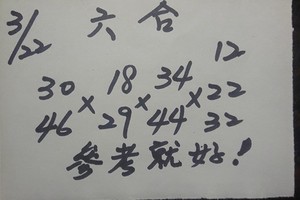 3/22 六合
12
30 18 34 22
× × ×
46 29 44 32
參考就好!